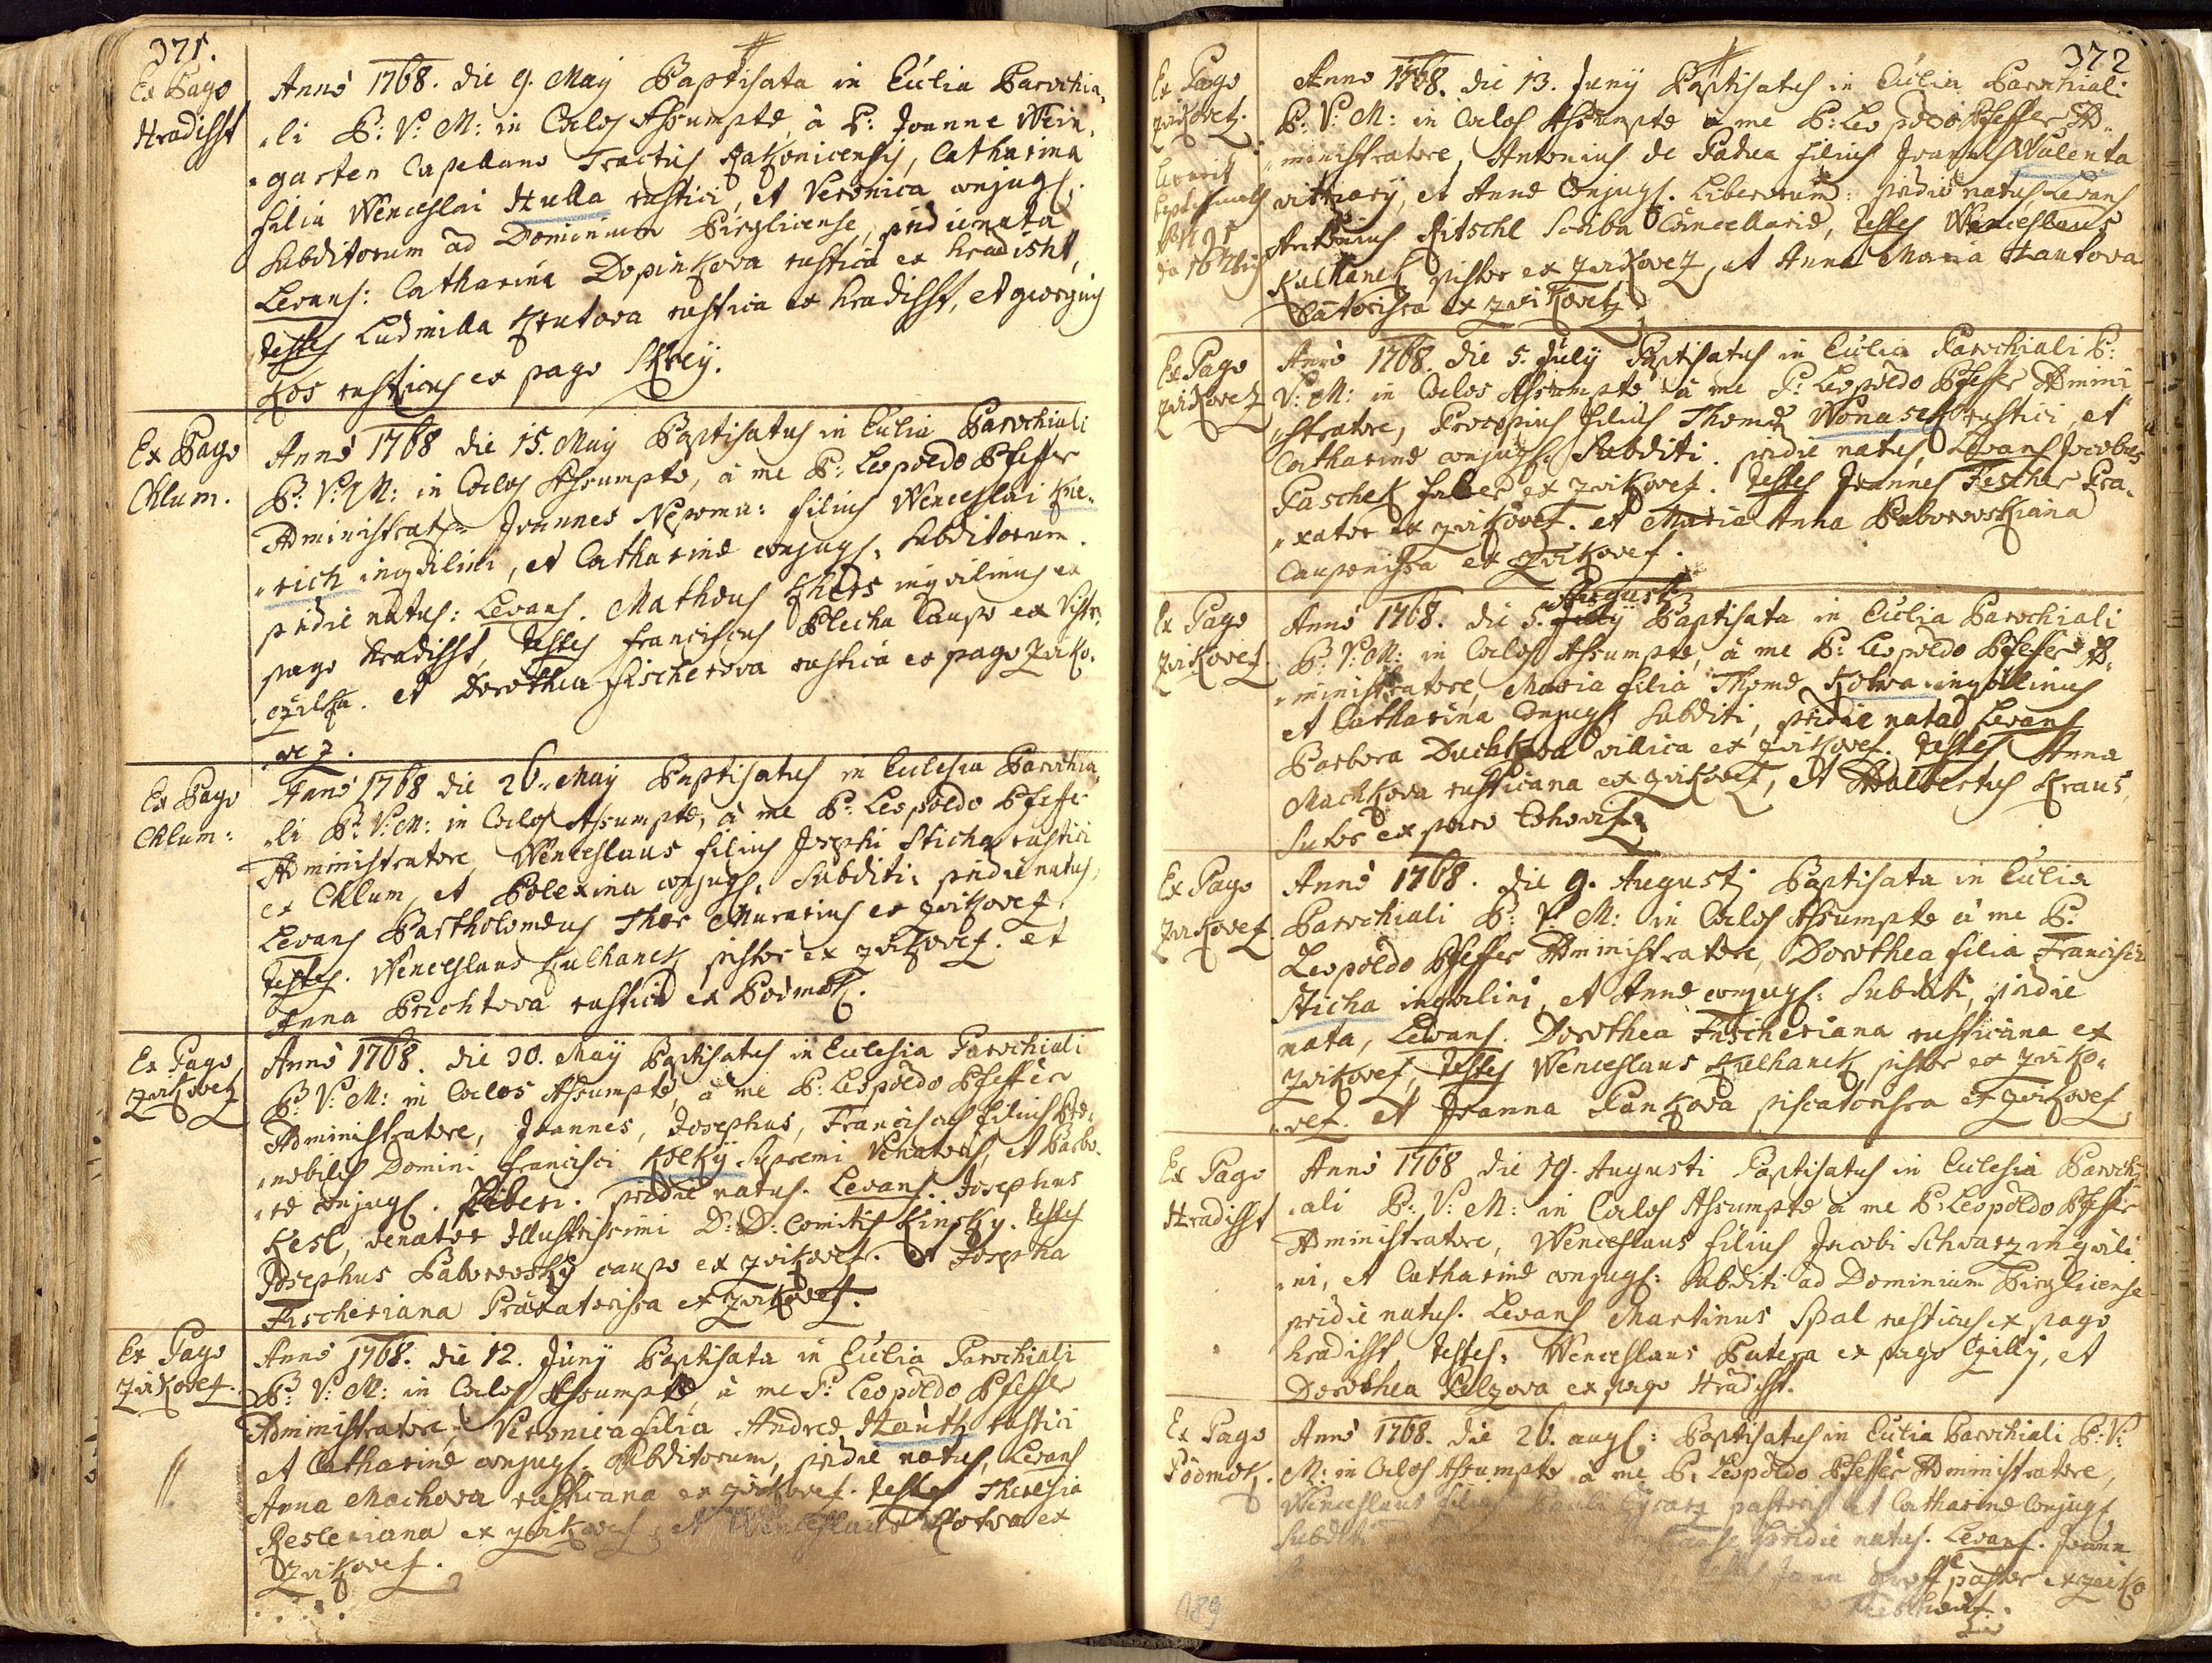 371.
Ex Pago
Hradisst
Anno 1768. die 9. Maÿ Baptisata in Ecc̄lia Parochia„
„li B: V: M: in Coelos Assumptæ, à P: Joanne Wein„
„garten Capellano Tractus Rakonicensis, Catharina
filia Wenceslai Hulla rustici, et Veronica conjugs.
Subditorum ad Dominium Pirglicense, pridie nata
Levans: Catharina Dopinkova rustica ex hradisht,
Testes Ludmilla Krutova rustica ex hradisst, et georgius
Kos rusticus ex pago Skreÿ.
Ex Pago
Chlum.
Anno 1768 die 15. Maÿ Baptisatus in Ecc̄lia Parochiali
B: V: M: in Coelos Assumptæ, à me P: Leopoldo Pfeffer
Administratore Joannes Nepomu: filius Wenceslai Kne„
„rich inqvilini, et Catharinæ conjugs. Subditorum.
pridie natus: Levans. Matheus inqvilinus ex
pago hradisst, Testes Franciscus Plecha Caupo ex
et Dorothea Fischerova rustica ex pago Zwiko„
„vez.
Ex Pago
Chlum:
Anno 1768 die 26. Maÿ Baptisatus in Ecclesia Parochia„
„li B: V: M: in Coelos Assumptæ, à me P: Leopoldo Pfeffer
Administratore, Wenceslaus filius Josephi Sticha rustici
ex Chlum, et Polexina conjugs. Subditi: pridie natus,
Levans Bartholomæus Thor Murarius ex zvikovez.
Testes. Wenceslaus Kulhanek pistor ex zvikovez. et
Anna Prichtova rustica ex Podmok.
Ex Pago
Zvikovez
Anno 1768. die 30. Maÿ Baptisatus in Ecclesia Parochiali
B: V: M: in Coelos Assumptæ, à me P: Leopoldo Pfeffer
Administratore, Joannes, Josephus, Franciscus filius Præ„
„nobilis Domini Francisci Kolkÿ Supremi Venatoris, et Barba„
„ræ conjugs. Liberi. pridie natus. Levans. Josephus
Kesl, venator Illustrissimi D: D: Comitis Kinsky. Testes
Josephus Baborovskÿ caupo ex zvikovez. et Josepha
Fischeriana Praxatorissa ex Zvikovez.
Ex Pago
Zvikovez.
Anno 1768. die 12. Junÿ Baptisata in Ecc̄lia Parochiali
B: V: M: in Coelos Assumptæ, à me P: Leopoldo Pfeffer
Administratore, Veronica filia Andreæ Hauth rustici
et Catharinæ conjugs. Subditorum, pridie natus, Levans
Anna Machova rusticana ex zvikovez. Testes Theresia
Resleriana ex zvikovez, et Wenceslaus Kotva ex
Zvikovez.
372
Ex Pago
zvikovetz.
Anno 1768. die 13. Junÿ Baptisatus in Ecc̄lia Parochiali
B: V: M: in Coelos Assumptæ à me P: Leopoldo Pfeffer Ad„
„ministratore, Antonius de Padua filius Joannis Walenta
vitriarÿ, et Annæ Conjugs. Liberorum: pridie natus, Levans
Antonius Ritschl Scriba Cancellariæ, Testes Wenceslaus
Kulhanek pistor ex zvikovez, et Anna Maria Hautova
ex zvikovetz.
Ex Pago
zvikovez
Anno 1768. die 5. Julÿ Baptisatus in Ecc̄lia Parochiali B:
V: M: in Coelos Assumptæ à me P: Leopoldo Pfeffer Admini
„stratore, Procopius filius Thomæ Wonasek rustici, et
Catharinæ conjugs. Subditi. pridie natus, Levans Jacobus
Paschek faber ex zvikovez. Testes Joannes Fischer Pra„
„xator ex zvikovez. et Maria Anna Baborovskiana
Cauponissa ex Zvikovez.
Ex Pago
zvikovez.
Augusti
Anno 1768. die 5. Julÿ Baptisata in Ecc̄lia Parochiali
B: V: M: in Coelos Assumptæ, à me P: Leopoldo Pfeffer Ad„
„ministratore, Maria filia Thomæ Kotva inqvilinus
et Catharina Conjugs. Subditi, pridie nata Levans
Barbora Duchkova villica ex zvikovez. Testes Anna
Machkova rusticana ex zvikovez, et Adalbertus Kraus
Sutor ex
Ex Pago
zvikovez.
Anno 1768. die 9. Augusti Baptisata in Ecc̄lia
Parochiali B: V: M: in Coelos Assumptæ à me P.
Leopoldo Pfeffer Administratore, Dorothea filia Francisci
Sticha inqvilini, et Annæ conjugs: Subditi, pridie
nata, Levans. Dorothea Fischeriana rusticana ex
zvikovez, Testes Wenceslaus Kulhanek pistor ex zviko„
„vez. et Joanna Pankova piscatorissa ex zvikovez.
Ex Pago
Hradisst
Anno 1768 die 19. Augusti Baptisatus in Ecclesia Parochi„
„ali B: V: M: in Coelos Assumptæ à me P: Leopoldo Pfeffer
Administratore, Wenceslaus filius Jacobi Schwarz inqvili
„ni, et Catharinæ conjugs: Subditi ad Dominium Pirglicense
pridie natus. Levans Martinus Spal rusticus ex pago
hradisst, Testes. Wenceslaus Putera ex pago Czillÿ, et
Dorothea Pelzova ex pago Hradisst.
Ex Pago
Podmok.
Anno 1768. die 26. augs: Baptisatus in Ecc̄lia Parochiali B: V:
M: in Coelos Assumptæ à me P: Leopoldo Pfeffer Administratore,
Wenceslaus filius Pauli pastoris et Catharinæ Conjugs.
Subditi pridie natus. Levans. Joann
Testes Jann pastor ex zviko
189